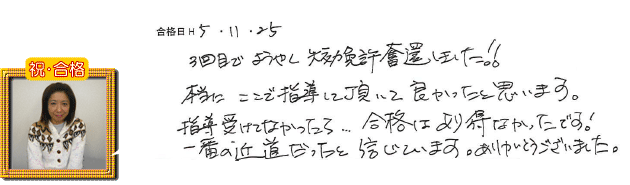 合格日 H 5・11・25
祝・合格
3回目でようやく大型免許奪還しました!!
本当に ここで指導して頂いて 良かったと思います。
指導受けてなかったら… 合格はあり得なかったです!
一番の近道だったと 信じています。ありがとうございました。